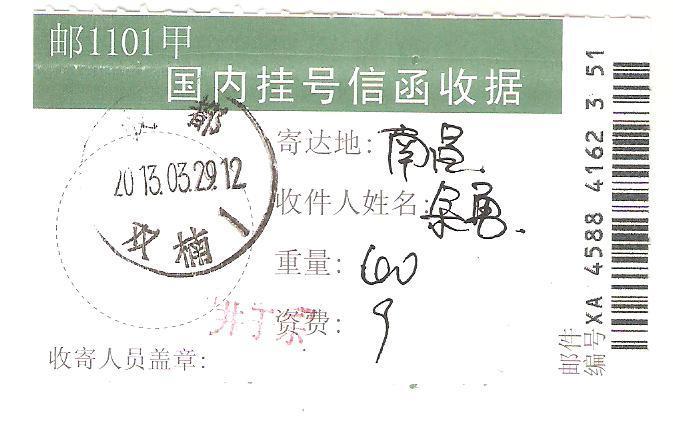 邮1101甲
国内挂号信函收据
都
2013.03.29.12
楠 1
寄达地: 南昌
收件人姓名:
重量:
资费: 9
收寄人员盖章:
邮件编号 XA 4588 4162 3 51